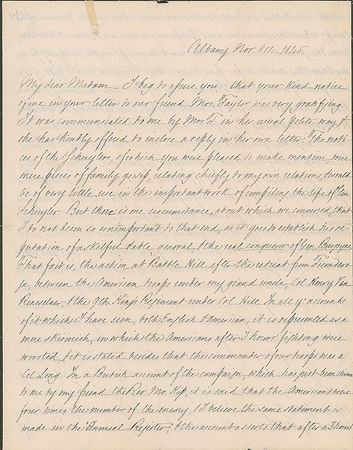 Albany Nov. 8th. 1845.
My dear Madam - I beg to assure you, that your kind notice
of me in your letter to our friend Mrs. Tayler was very gratifying.
It was communicated to me by Mrs. T. in her usual polite way &
she has kindly offered to inclose a reply in her own letter. The noti-
ces of the Schuylers, of which you were pleased to make mention, were
mere pieces of family gossip, relating chiefly to my own relations, & would
be of very little use in the important work of compiling the life of Gen.
Schuyler. But there is one circumstance, about which we conversed, that
I do not deem so unimportant to that end, as it goes to establish his re-
putation of a skilful & able general, & the real conqueror of Gen. Burgoyne.
That fact is, the action at Battle Hill after the retreat from Ticondero-
ga, between the American troops under my grand uncle, Col. Henry Van
Renselaer, & the 9th Kings Regiment under Col. Hill. In all ye accounts
of it which I have seen, both English & American, it is represented as a
mere skirmish, in which the Americans after 3 hours fighting were
worsted. It is stated besides that the commander of our troops was a
Col. Long. In a British account of the campaign, which has just been shown
to me by my friend the Rev. Mr. Kip, it is said that the Americans were
four times the number of the enemy. I believe the same statement is
made in the Annual Register; & the account asserts that after a 3 hours